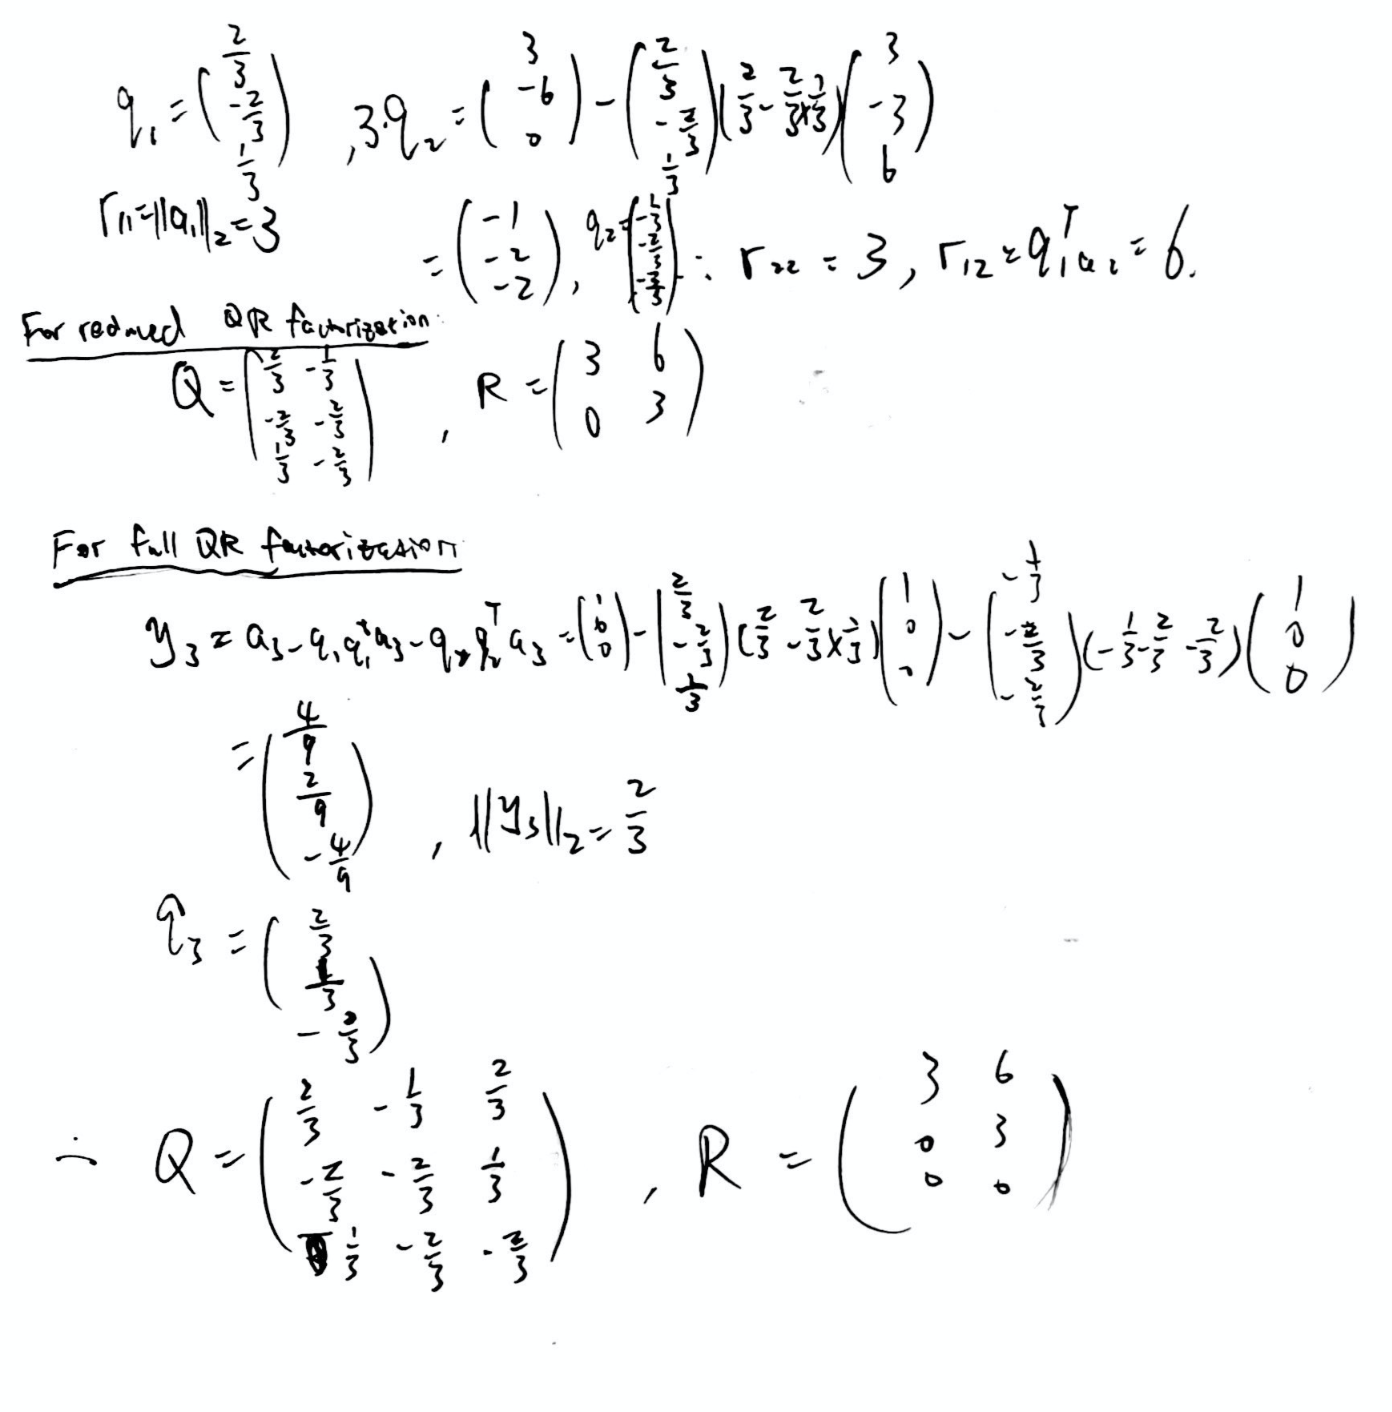 q₁ = (2/3, -2/3, 1/3), 3·q₂ = (3, -6, 0) - (2/3, -2/3, 1/3)(2/3 - 2/3 × 1/3)(3, -3, 6)
r₁₁ = ||a₁||₂ = 3
= (-1, -2, -2), q₂ = (-1/3, -2/3, -2/3) ∴ r₂₂ = 3, r₁₂ = q₁ᵀa₂ = 6.
For reduced QR factorization:
Q = (2/3 -1/3; -2/3 -2/3; 1/3 -2/3), R = (3 6; 0 3)
For full QR factorization
y₃ = a₃ - q₁q₁ᵀa₃ - q₂q₂ᵀa₃ = (1, 0, 0) - (2/3, -2/3, 1/3)(2/3 - 2/3 × 1/3)(1, 0, 0) - (-1/3, -2/3, -2/3)(-1/3 - 2/3 - 2/3)(1, 0, 0)
= (4/9, 2/9, -4/9), ||y₃||₂ = 2/3
q₃ = (2/3, 1/3, -2/3)
∴ Q = (2/3 -1/3 2/3; -2/3 -2/3 1/3; 1/3 -2/3 -2/3), R = (3 6; 0 3; 0 0)